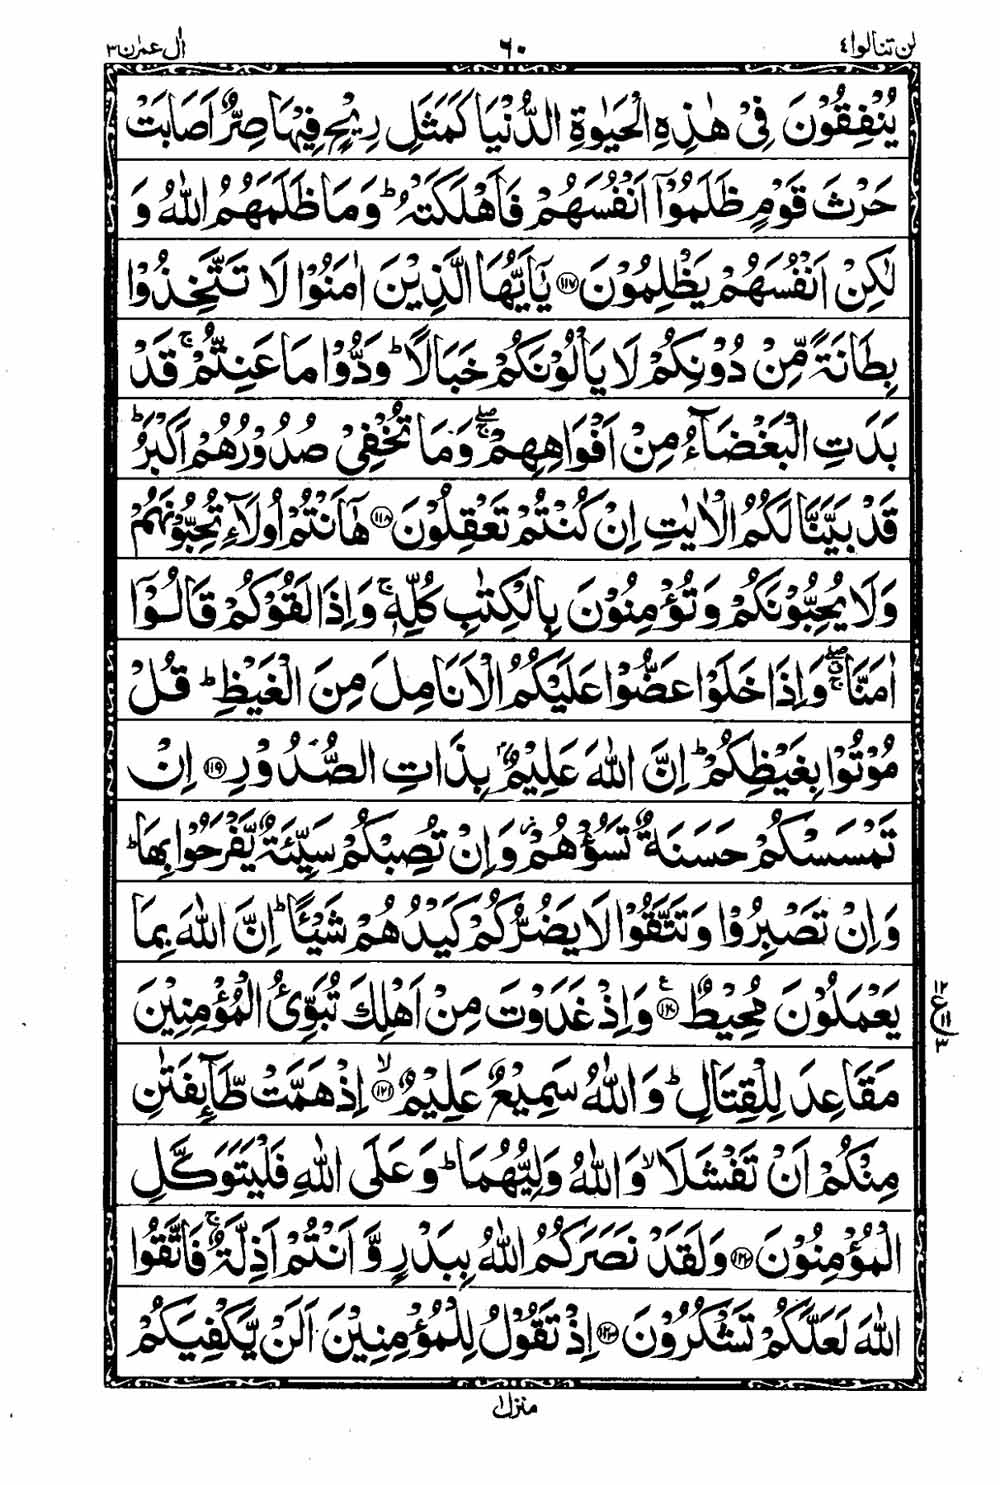 لن تنالوا ٤
٦٠
اٰل عمرٰن ٣
يُنْفِقُوْنَ فِيْ هٰذِهِ الْحَيٰوةِ الدُّنْيَا كَمَثَلِ رِيْحٍ فِيْهَا صِرٌّ اَصَابَتْ
حَرْثَ قَوْمٍ ظَلَمُوْۤا اَنْفُسَهُمْ فَاَهْلَكَتْهُ ؕ وَمَا ظَلَمَهُمُ اللّٰهُ وَ
لٰكِنْ اَنْفُسَهُمْ يَظْلِمُوْنَ ﴿۱۱۷﴾ يٰۤاَيُّهَا الَّذِيْنَ اٰمَنُوْا لَا تَتَّخِذُوْا
بِطَانَةً مِّنْ دُوْنِكُمْ لَا يَاْلُوْنَكُمْ خَبَالًا ؕ وَدُّوْا مَا عَنِتُّمْ ۚ قَدْ
بَدَتِ الْبَغْضَآءُ مِنْ اَفْوَاهِهِمْ ۖۚ وَمَا تُخْفِيْ صُدُوْرُهُمْ اَكْبَرُ ؕ
قَدْ بَيَّنَّا لَكُمُ الْاٰيٰتِ اِنْ كُنْتُمْ تَعْقِلُوْنَ ﴿۱۱۸﴾ هٰۤاَنْتُمْ اُولَآءِ تُحِبُّوْنَهُمْ
وَلَا يُحِبُّوْنَكُمْ وَتُؤْمِنُوْنَ بِالْكِتٰبِ كُلِّهٖ ۚ وَاِذَا لَقُوْكُمْ قَالُوْۤا
اٰمَنَّا ۖۗۚ وَاِذَا خَلَوْا عَضُّوْا عَلَيْكُمُ الْاَنَامِلَ مِنَ الْغَيْظِ ؕ قُلْ
مُوْتُوْا بِغَيْظِكُمْ ؕ اِنَّ اللّٰهَ عَلِيْمٌۢ بِذَاتِ الصُّدُوْرِ ﴿۱۱۹﴾ اِنْ
تَمْسَسْكُمْ حَسَنَةٌ تَسُؤْهُمْ ؗ وَاِنْ تُصِبْكُمْ سَيِّئَةٌ يَّفْرَحُوْا بِهَا ؕ
وَاِنْ تَصْبِرُوْا وَتَتَّقُوْا لَا يَضُرُّكُمْ كَيْدُهُمْ شَيْـًٔا ؕ اِنَّ اللّٰهَ بِمَا
يَعْمَلُوْنَ مُحِيْطٌ ﴿۱۲۰﴾ ع وَاِذْ غَدَوْتَ مِنْ اَهْلِكَ تُبَوِّئُ الْمُؤْمِنِيْنَ
۱۲ ع ۱۱ ۳
مَقَاعِدَ لِلْقِتَالِ ؕ وَاللّٰهُ سَمِيْعٌ عَلِيْمٌ ﴿۱۲۱﴾ ۙ اِذْ هَمَّتْ طَّآئِفَتٰنِ
مِنْكُمْ اَنْ تَفْشَلَا ۙ وَاللّٰهُ وَلِيُّهُمَا ؕ وَعَلَى اللّٰهِ فَلْيَتَوَكَّلِ
الْمُؤْمِنُوْنَ ﴿۱۲۲﴾ وَلَقَدْ نَصَرَكُمُ اللّٰهُ بِبَدْرٍ وَّاَنْتُمْ اَذِلَّةٌ ۚ فَاتَّقُوا
اللّٰهَ لَعَلَّكُمْ تَشْكُرُوْنَ ﴿۱۲۳﴾ اِذْ تَقُوْلُ لِلْمُؤْمِنِيْنَ اَلَنْ يَّكْفِيَكُمْ
منزل ۱